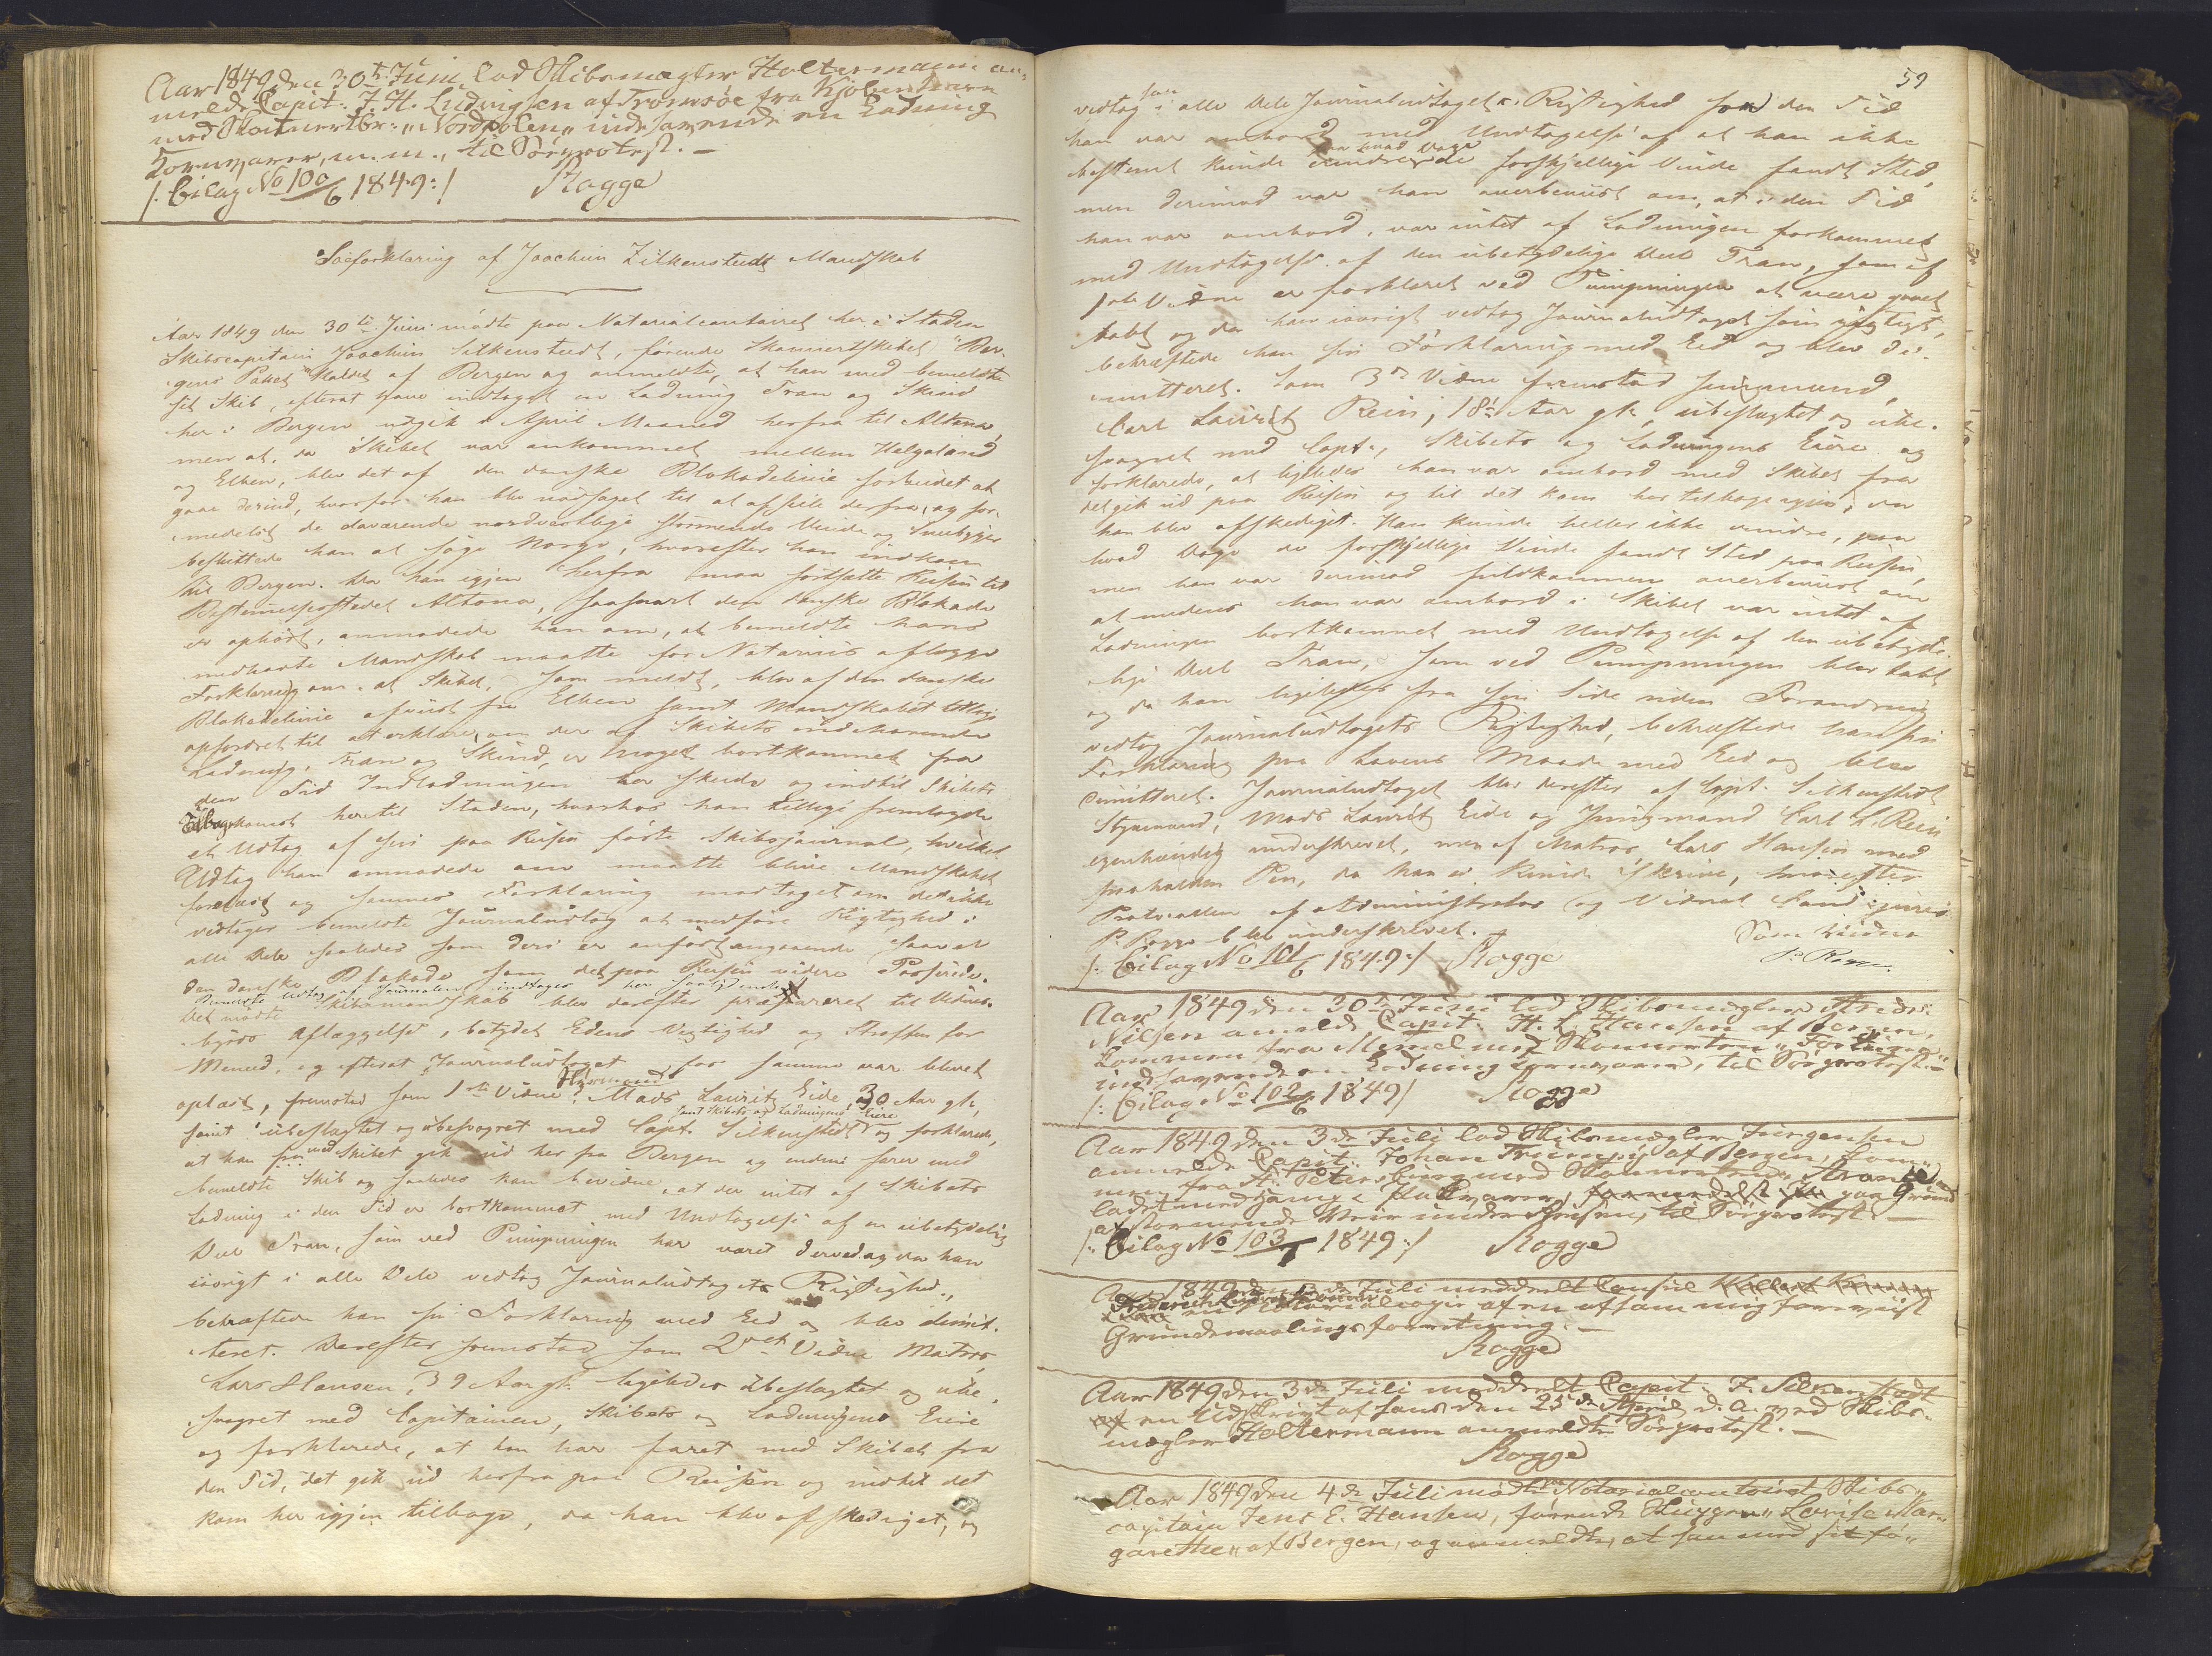 Aar 1849 den 30te Juni lod Skibsmægler Holtermann an-
melde Capit: J. H. Ludvigsen af Tromsøe fra Kjøbenhavn
med Skonnertbr: „Nordpolen„ indehavende en Ladning
Kornvarer, m.m., til Søeprotest. —
/: Bilag No 100/6 1849 :/ Rogge
Søeforklaring af Joachim Zilkenstedts Mandskab
Aar 1849 den 30te Juni mødte paa Notarialcontoiret her i Staden
Skibscapitain Joachim Silkenstedt, førende Skonnertskibet "Ber-
gens Paket" kaldet af Bergen og anmeldte, at han med bemeldte
sit Skib, efterat have indtaget en Ladning Tran og Skind
her i Bergen udgik i April Maaned herfra til Altona,
men at, da Skibet var ankommet mellem Helgoland
og Elben, blev det af den danske Blokadelinie forbudet at
gaae derind, hvorfor han blev nødsaget til at afseile derfra, og for-
medelst de daværende nordvestlige stormende Vinde og Sneebyger
besluttede han at søge Norge, hvorefter han indkom
til Bergen. Da han igjen herfra maa fortsætte Reisen til
Bestemmelsesstedet Altona, saasnart den danske Blokade
er ophørt, anmodede han om, at bemeldte hans
medhavte Mandskab maatte for Notarius aflægge
Forklaring om at Skibet, som meldt, blev af den danske
Blokadelinie afviist fra Elben samt Mandskabet tillige
opfordret til at erklære, om der af Skibets indehavende
Ladning, Tran og Skind, er noget bortkommet fra
den Tid Indladningen her skeede og indtil Skibets
Tilbagekomst hertil Staden, hvorhos han tillige fremlagde
et Udtog af sin paa Reisen førte Skibsjournal, hvilket
Udtog han anmodede om maatte blive Mandskabet
forelæst og sammes Forklaring modtaget om det ikke
vedtager bemeldte Journaludtog at medføre Rigtighed i
alle Dele saaledes som deri er anført angaaende saavel
den danske Blokade som det paa Reisen videre Passerede.
Bemeldte Udtog af Journalen indtages her
Det mødte Skibsmandskab blev derefter præpareret til Vidnes-
byrds Aflæggelse, betydet Edens Vigtighed og Straffen for
Meneed, og efterat Journaludtoget for samme var blevet
oplæst, fremstod som 1ste Vidne: Styrmand Mads Lauritz Eide, 30 Aar gl,
samt ubeslægtet og ubesvogret med Capt. Silkenstedt samt Skibets og Ladningens Eiere og forklarede,
at han fra med Skibet gik ud her fra Bergen og endnu farer med
bemeldte Skib og saaledes kan bevidne, at der intet af Skibets
Ladning i den Tid er bortkommet med Undtagelse af en ubetydelig
Deel Tran, som ved Pumpningen har været derved og da han
iøvrigt i alle Dele vedtog Journaludtogets Rigtighed,
bekræftede han sin Forklaring med Eed og blev dimit-
teret. Derefter fremstod som 2det Vidne Matros
Lars Hansen, 39 Aar gl. ligeledes ubeslægtet og ube-
svogret med Capitainen, Skibets og Ladningens Eiere
og forklarede, at han har faret med Skibet fra
den Tid, det gik ud herfra paa Reisen og indtil det
kom her igjen tilbage, da han blev afskediget, og
59
vedtog han i alle Dele Journaludtogets Rigtighed for den Tid
han var ombord med Undtagelse af at han ikke
bestemt kunde erindre paa hvad Dage de forskjellige Vinde fandt Sted,
men derimod var han overbeviist om, at i den Tid
han var ombord, var intet af Ladningen forkommet
med Undtagelse af den ubetydelige Deel Tran, som af
1ste Vidne er forklaret ved Pumpningen at være gaaet
tabt og da han iøvrigt vedtog Journaludtoget som rigtigt,
bekræftede han sin Forklaring med Eed og blev di-
mitteret. Som 3die Vidne fremstod Jungmand,
Carl Lauritz Rein, 18 Aar gl, ubeslægtet og ube-
svogret med Capt., Skibets og Ladningens Eiere og
forklarede, at ligeledes han var ombord med Skibet fra
det gik ud paa Reisen og til det kom her tilbage igjen, da
han blev afskediget. Han kunde heller ikke erindre, paa
hvad Dage de forskjellige Vinde fandt Sted paa Reisen,
men han var derimod fuldkommen overbeviist om
at medens han var ombord i Skibet var intet af
Ladningen bortkommet med Undtagelse af den ubetyde-
lige Deel Tran, som ved Pumpningen blev tabt
og da han ligeledes fra sin Side uden Forandring
vedtog Journaludtogets Rigtighed, bekræftede han sin
Forklaring paa Lovens Maade med Eed og blev
dimitteret. Journaludtoget blev derefter af Capt. Silkenstedt
Styrmand, Mads Lauritz Eide og Jungmand Carl L. Rein
egenhændig underskrevet, men af Matros Lars Hansen med
paaholden Pen, da han ei kunde skrive, hvorefter
Protocollen af Administrator og Vidnet Cand: juris
P. Rogge blev underskrevet.
Som Vidne
/: Bilag No 101/6 1849 :/ Rogge
Aar 1849 den 30te Juni lod Skibsmægler Fredr:
Nilsen anmelde Capit: H. L. Hansen af Bergen,
kommen fra Memel med Skonnerten „Fortuna„
indehavende en Ladning Kornvarer, til Søeprotest. —
/: Bilag No 102/6 1849 :/ Rogge
Aar 1849 den 3de Juli lod Skibsmægler Jürgensen
anmelde Capit: Johan Trumpy af Bergen, kom-
men fra St. Petersburg med Skonnerten
ladet med Hamp & Hudevarer, formedelst paa Grund
af stormende Veir under Reisen, til Søeprotest. —
/: Bilag No 103/7 1849 :/ Rogge
Aar 1849 den 3de Juli meddeelt Consul
Notarialcopie af en af ham mig foreviist
Grundemaalingsforretning. —
Rogge
Aar 1849 den 3de Juli meddeelt Capit: J. Silkenstedt
af en Udskrivt af hans den 25de April d. A. ved Skibs-
mægler Holtermann anmeldte Søeprotest. —
Rogge
Aar 1849 den 4de Juli mødte paa Notarialcontoiret Skibs-
capitain Jens E. Hansen, førende Skuyten „Lovise Mar-
garethe„ af Bergen, og anmeldte, at han med sit fø-